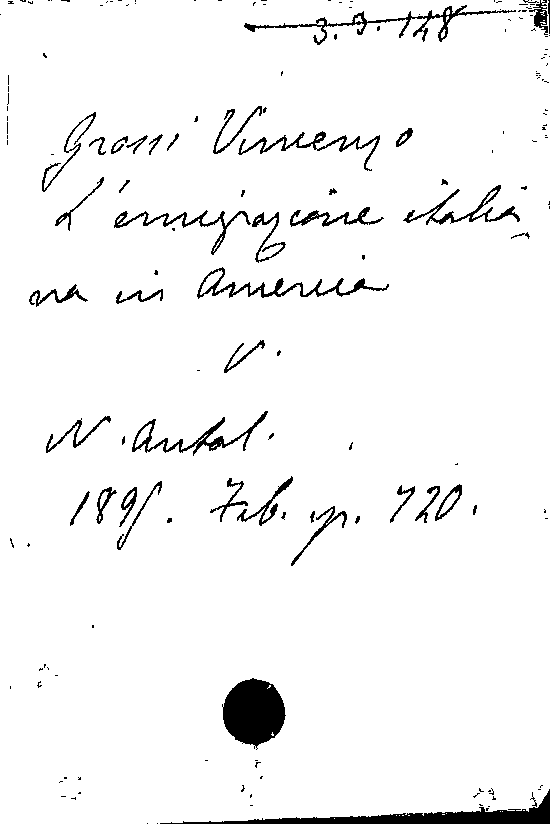 3.3.148
Grossi Vincenzo
L'emigrazione italia-
na in America
V.
N. Antol.
1895. Feb. p. 720.